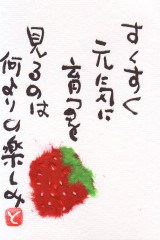 すくすく
元気に
育つを
見るのは
何よりの楽しみ
と